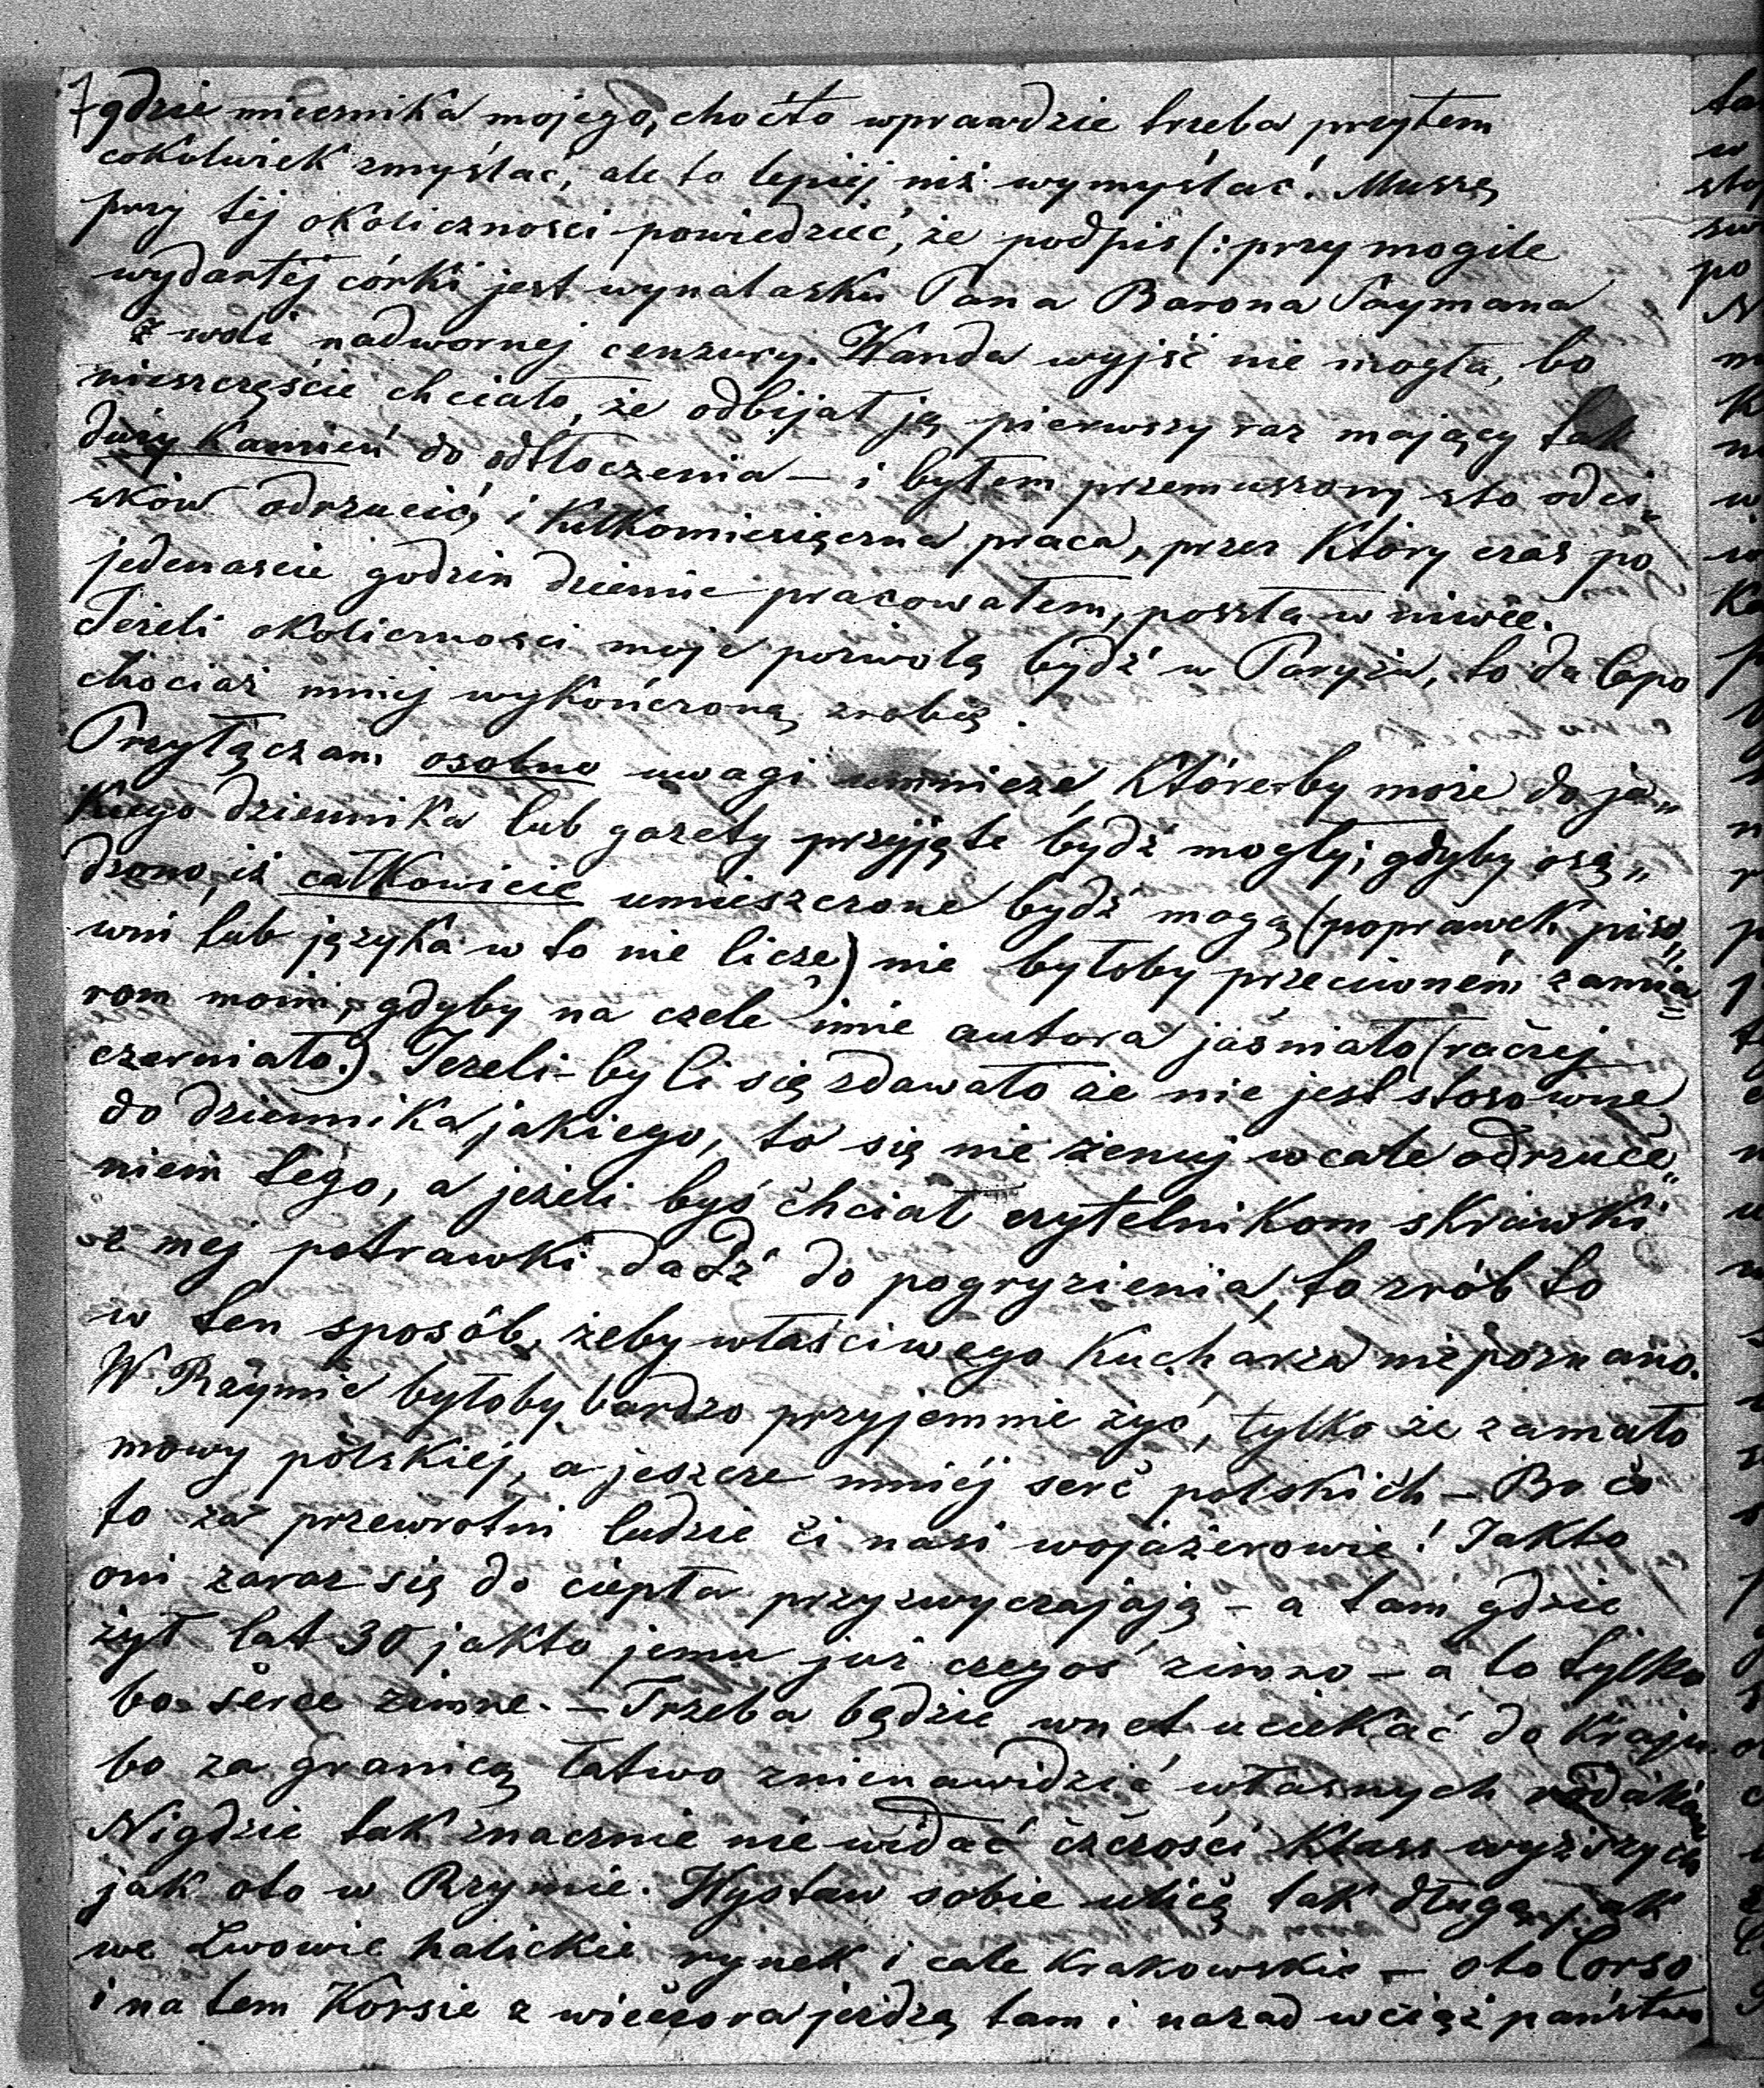 gdzie miernika mojego, choćto wprawdzie trzeba przytem
cokolwiek zmyślać, ale to lepiej niż wymyślać. Muszę
przy tej okoliczności powiedzieć, że podpis (: przy mogile
wydartéj córki jest wynalasku Pana Barona Paymana
z woli nadwornej cenzury. Wanda wyjść nie mogła, bo
nieszczęście chciało, że odbijał ją pierwszy raz mający tak
duży Kamień do odtłoczenia – i byłem przemuszony sto odci„
sków odrzucić, i Kilkomiesięczna praca, przez Który czas po
jedenaście godzin dziennie pracowałem, poszła w niwec.
Jeżeli okoliczności moje pozwolą bydź w Paryżu, to da Capo
chociaż mniej wykończoną zrobię.
Przyłączam osobno uwagi Któreby może do ja„
kiego dziennika lub gazety przyjęte bydź mogły; gdyby osą„
dzono, iż całkowicie umieszczone bydź mogą (poprawek piso„
wni lub języka w to nie liczę) nie byłoby przeciwném zamia
rom moim, gdyby na czele imie autora jaśniało (raczej
czerniało.) Jeżeli-by Ci się zdawało że nie jest stosowne
do dziennika jakiego, to się nie żenuj wcale odrzuce„
niem tego, a jeżeli byś chciał czytelnikom skrawki
z mej potrawki dadź do pogryzienia, to zrób to
w ten sposób, żeby właściwego Kucharza nie poznano.
W Rzymie byłoby bardzo przyjemnie żyć, tylko że zamało
mowy polskiej, a jeszcze mniéj serc polskich – Bo co
to za przewrotni ludzie ci nasi wojażerowie! Jakto
oni zaraz się do ciepła przyzwyczajają – a tam gdzie
żył lat 30 jakto jemu już czegoś zimno – a to tylko
bo serce zimne. – Trzeba będzie wnet uciekać do Kraju
bo za granicą łatwo znienawidzić własnych rodaków
Nigdzie tak znacznie nie widać czczości Klass wyższych
jak oto w Rzymie. Wystaw sobie ulicę tak długą, jak
we Lwowie halickie rynek i całe Krakowskie – oto Corso
i na tem Korsie z wieczora jeżdżą tam i nazad wciąż państwo